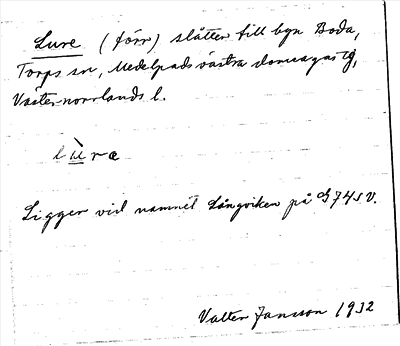 Lure (förr) slåtter till byn Boda,
Torps sn, Medelpads västra domsagas tg,
Västernorrlands l.
lùra
Ligger vid namnet Långviken på G 74 S V.
Valter Jansson 1932